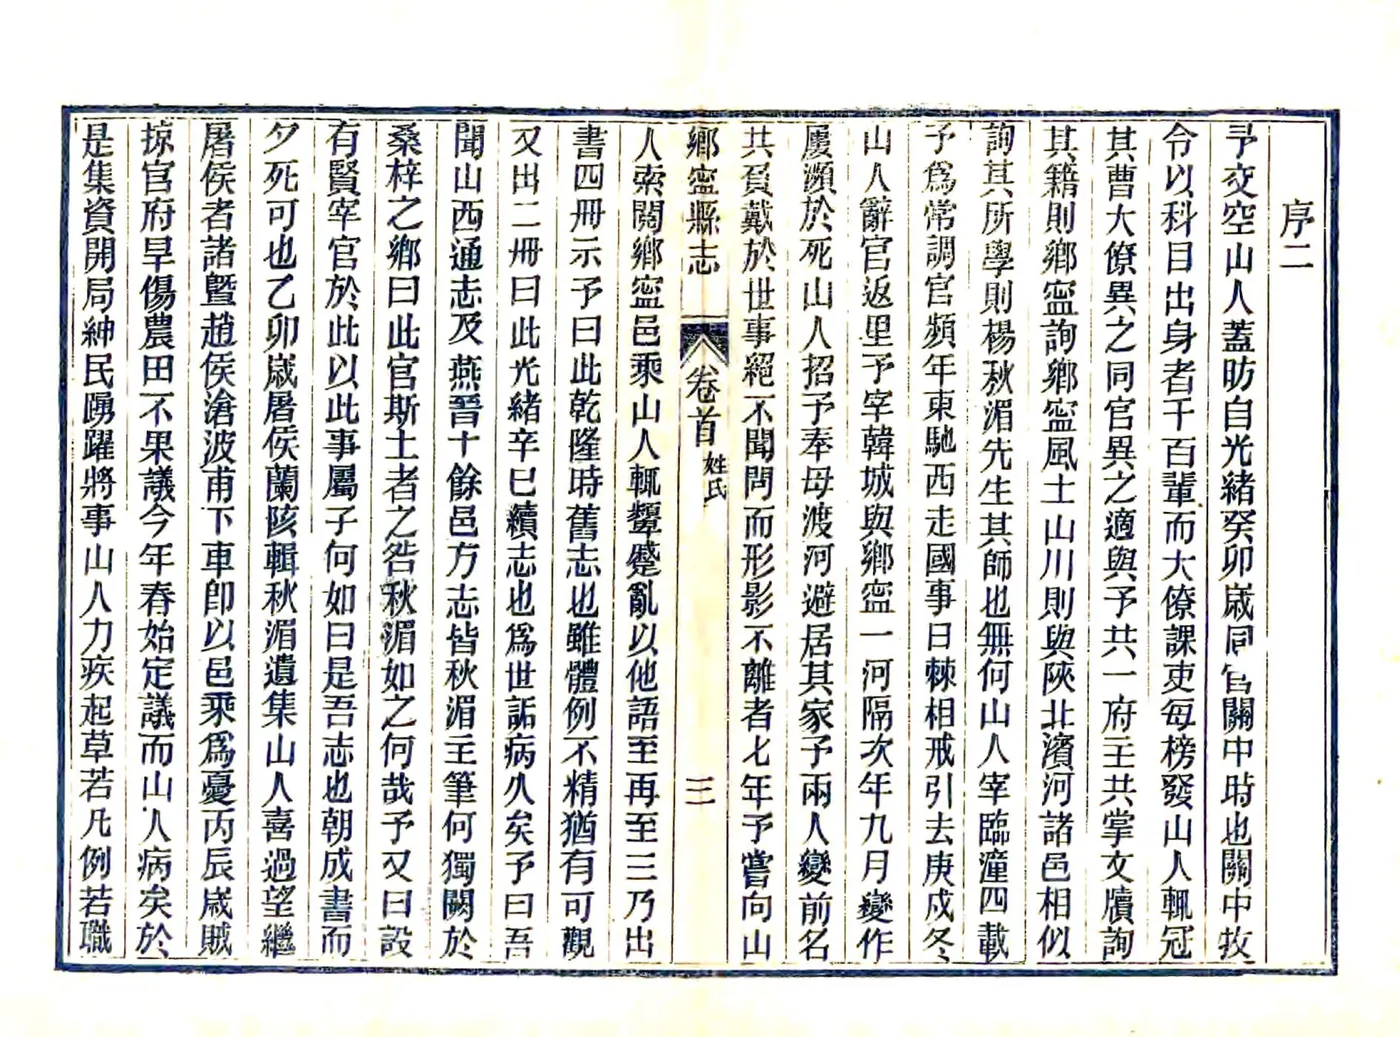 序二
予交空山人蓋昉自光緒癸卯歲同官關中時也關中牧
令以科目出身者千百輩而大僚課吏每榜發山人輒冠
其曹大僚異之同官異之適與予共一府主共掌文牘詢
其籍則鄉寍詢鄉寍風土山川則與陝北濱河諸邑相似
詢其所學則楊秋湄先生其師也無何山人宰臨潼四載
予爲常調官頻年東馳西走國事日棘相戒引去庚戍冬
山人辭官返里予宰韓城與鄉寍一河隔次年九月變作
屢瀕於死山人招予奉母渡河避居其家予兩人變前名
共負戴於世事絕不聞問而形影不離者七年予嘗向山
鄉寍縣志
卷首
姓氏
三
人索閱鄉寍邑乘山人輒顰蹙亂以他語至再至三乃出
書四冊示予曰此乾隆時舊志也雖體例不精猶有可觀
又出二冊曰此光緒辛巳續志也爲世詬病久矣予曰吾
聞山西通志及燕晉十餘邑方志皆秋湄主筆何獨闕於
桑梓之鄉曰此官斯土者之咎秋湄如之何哉予又曰設
有賢宰官於此以此事屬子何如曰是吾志也朝成書而
夕死可也乙卯歲屠侯蘭陔輯秋湄遺集山人喜過望繼
屠侯者諸暨趙侯滄波甫下車卽以邑乘爲憂丙辰歲賊
掠官府旱傷農田不果議今年春始定議而山人病矣於
是集資開局紳民踴躍將事山人力疾起草若凡例若職